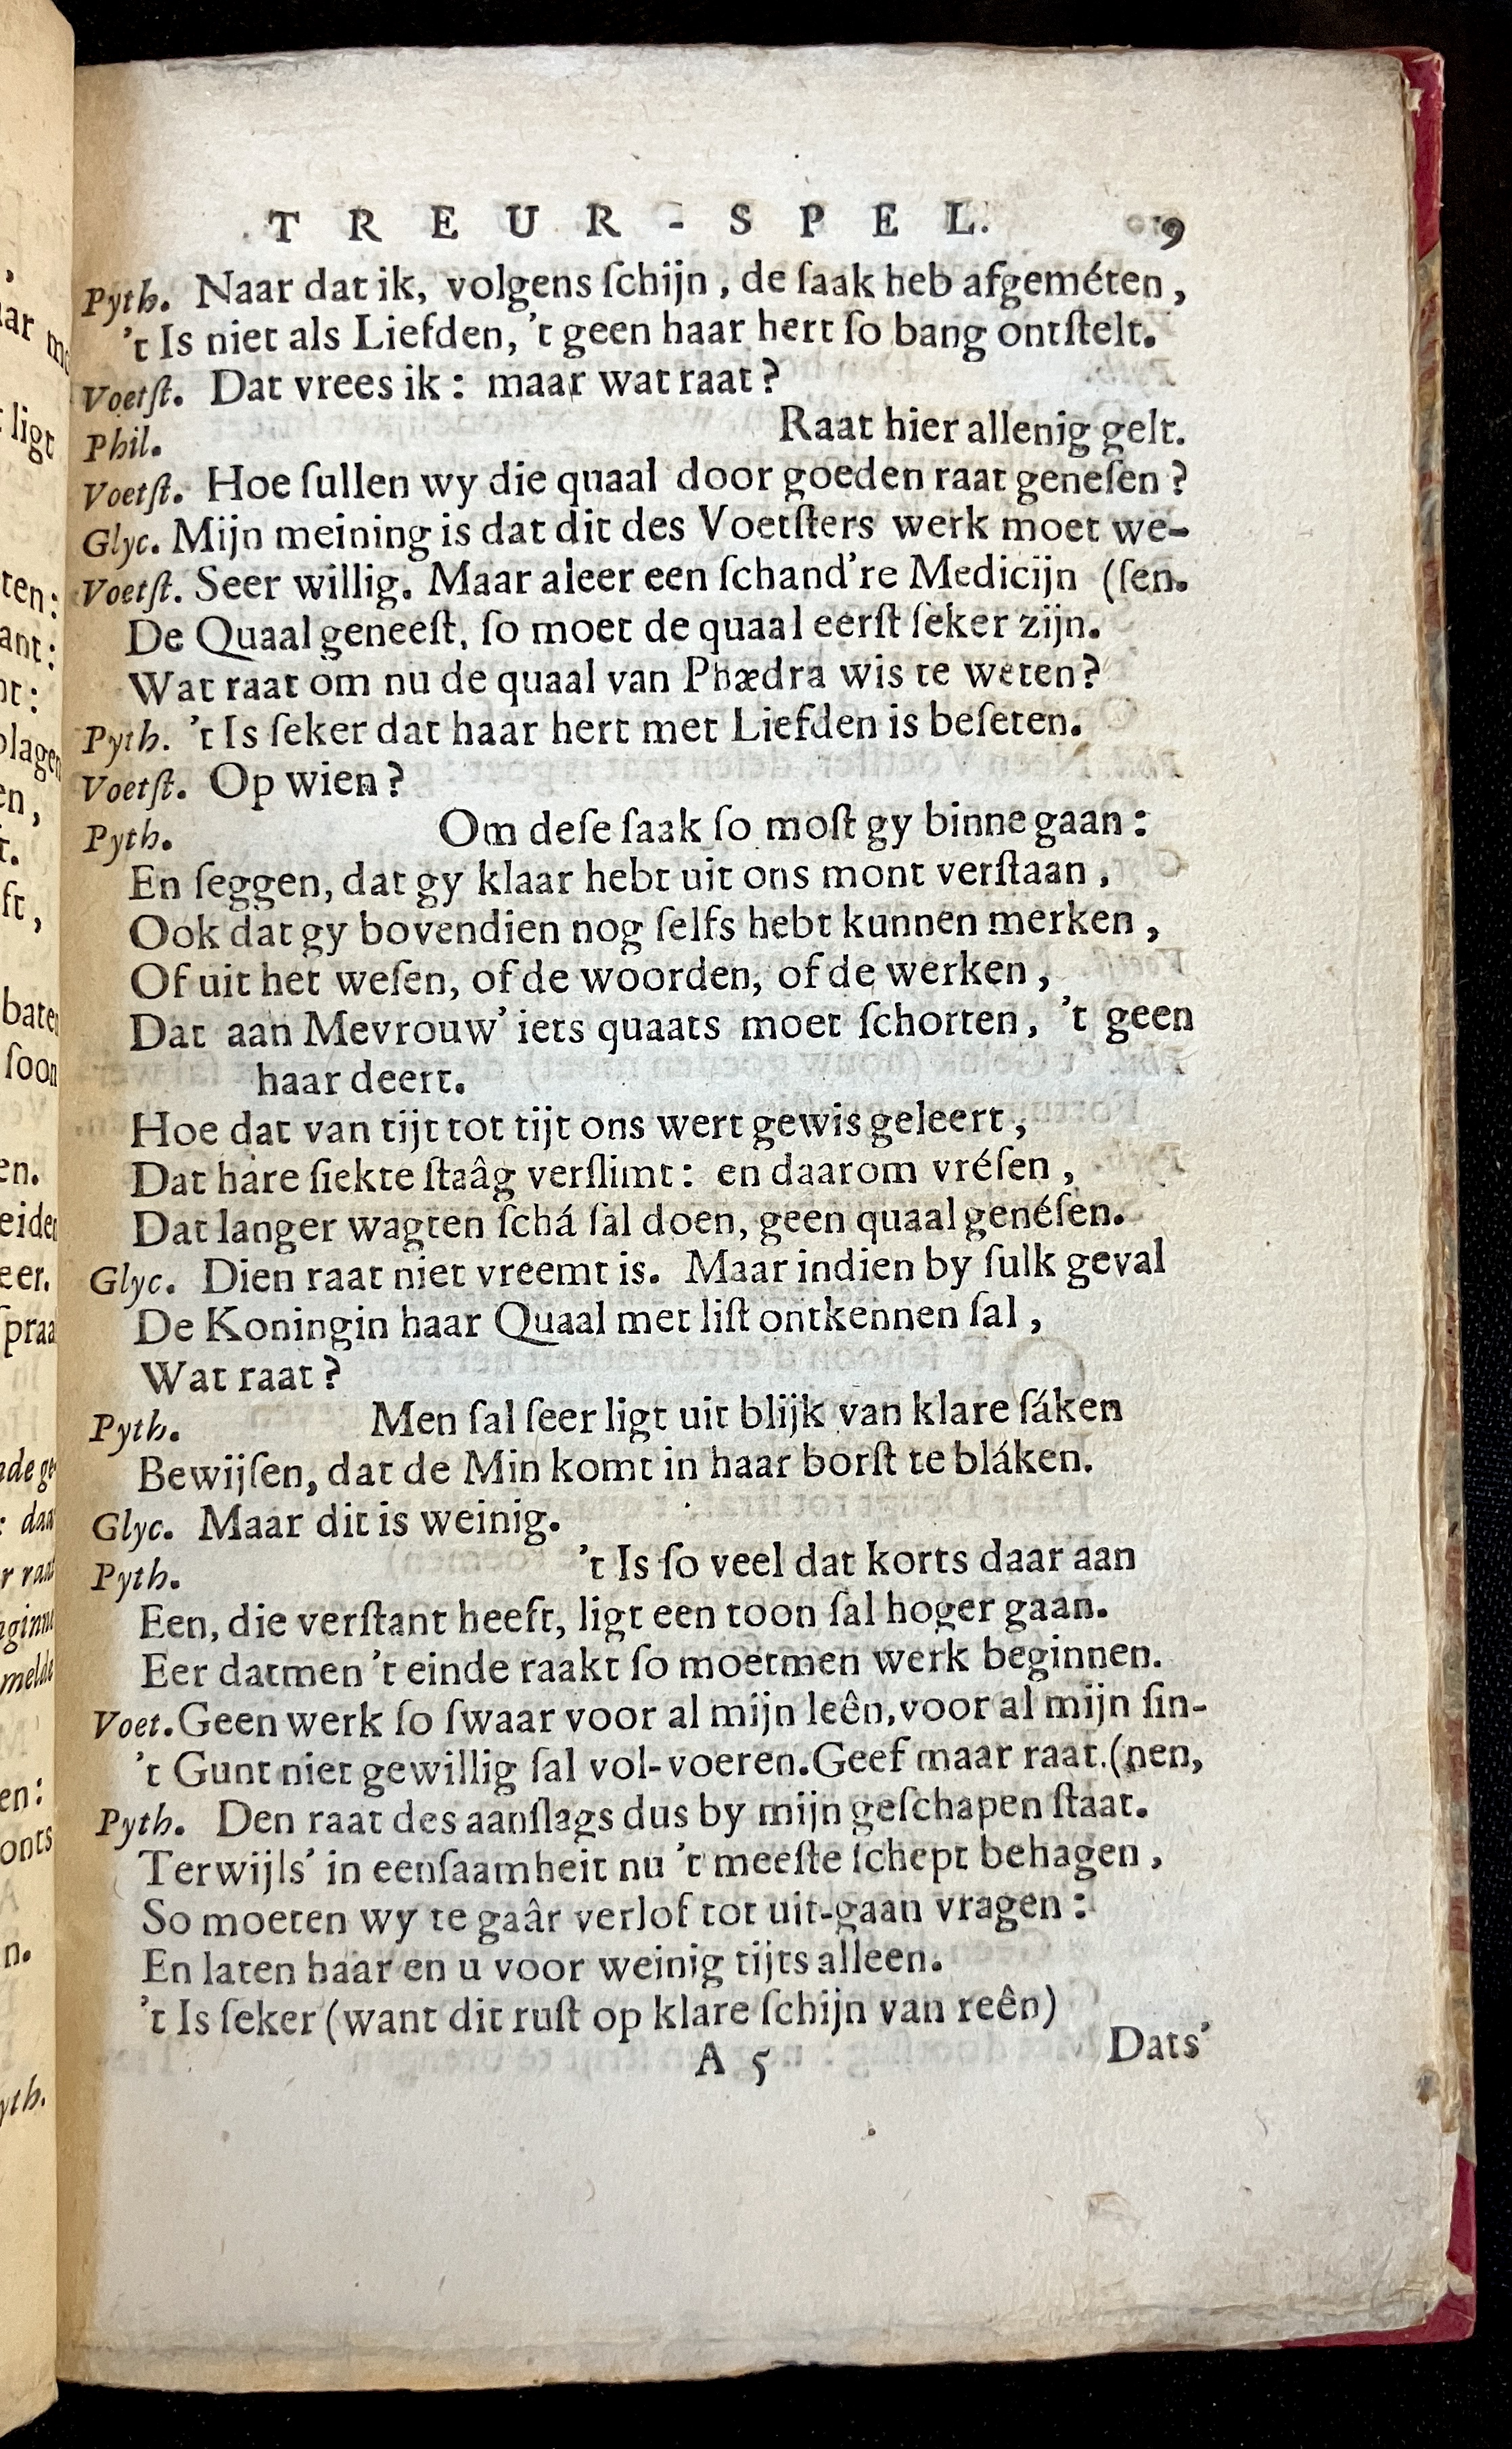 TREUR-SPEL. 9
Pyth. Naar dat ik, volgens ſchijn, de ſaak heb afgeméten,
't Is niet als Liefden, 't geen haar hert ſo bang ontſtelt.
Voetſt. Dat vrees ik: maar wat raat?
Phil. Raat hier allenig gelt.
Voetſt. Hoe ſullen wy die quaal door goeden raat geneſen?
Glyc. Mijn meining is dat dit des Voetſters werk moet we-
Voetſt. Seer willig. Maar aleer een ſchand're Medicijn (ſen.
De Quaal geneeſt, ſo moet de quaal eerſt ſeker zijn.
Wat raat om nu de quaal van Phædra wis te weten?
Pyth. 't Is ſeker dat haar hert met Liefden is beſeten.
Voetſt. Op wien?
Pyth. Om deſe ſaak ſo moſt gy binne gaan:
En ſeggen, dat gy klaar hebt uit ons mont verſtaan,
Ook dat gy bovendien nog ſelfs hebt kunnen merken,
Of uit het weſen, of de woorden, of de werken,
Dat aan Mevrouw' iets quaats moet ſchorten, 't geen
haar deert.
Hoe dat van tijt tot tijt ons wert gewis geleert,
Dat hare ſiekte ſtaâg verſlimt: en daarom vréſen,
Dat langer wagten ſchá ſal doen, geen quaal genéſen.
Glyc. Dien raat niet vreemt is. Maar indien by ſulk geval
De Koningin haar Quaal met liſt ontkennen ſal,
Wat raat?
Pyth. Men ſal ſeer ligt uit blijk van klare ſáken
Bewijſen, dat de Min komt in haar borſt te bláken.
Glyc. Maar dit is weinig.
Pyth. 't Is ſo veel dat korts daar aan
Een, die verſtant heeft, ligt een toon ſal hoger gaan.
Eer datmen 't einde raakt ſo moetmen werk beginnen.
Voet. Geen werk ſo ſwaar voor al mijn leên, voor al mijn ſin-
't Gunt niet gewillig ſal vol-voeren. Geef maar raat. (nen,
Pyth. Den raat des aanſlags dus by mijn geſchapen ſtaat.
Terwijls' in eenſaamheit nu 't meeſte ſchept behagen,
So moeten wy te gaâr verlof tot uit-gaan vragen:
En laten haar en u voor weinig tijts alleen.
't Is ſeker (want dit ruſt op klare ſchijn van reên)
A 5 Dats'